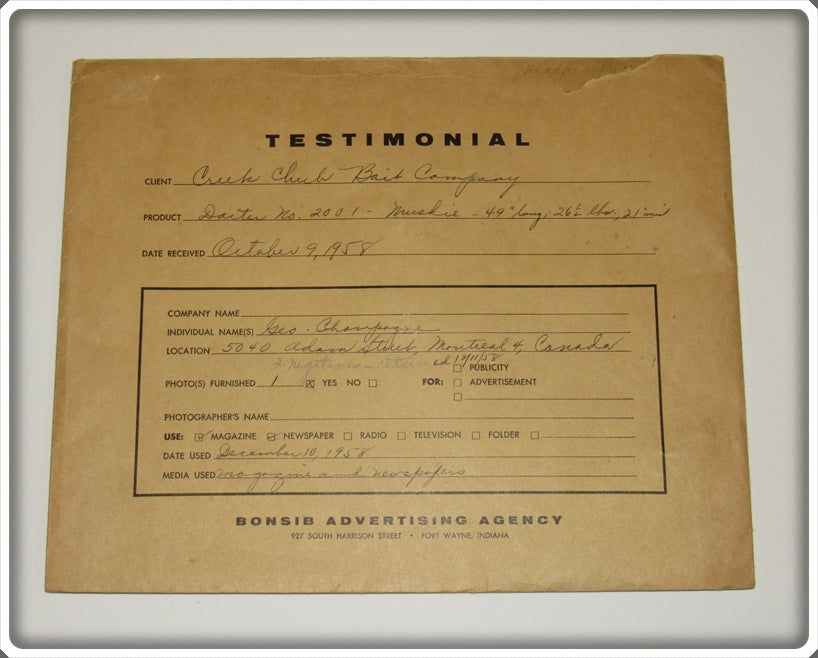 TESTIMONIAL
CLIENT Creek Chub Bait Company
PRODUCT Darter No. 2001 - Muskie - 49" long, 26½ lbs., 21 min
DATE RECEIVED October 9, 1958
COMPANY NAME
INDIVIDUAL NAME(S) Geo. Champagne
LOCATION 5040 Adam Street, Montreal 4, Canada
2 negatives - returned 12/11/58
PUBLICITY
PHOTO(S) FURNISHED 1 YES NO FOR: ADVERTISEMENT
PHOTOGRAPHER'S NAME
USE: MAGAZINE NEWSPAPER RADIO TELEVISION FOLDER
DATE USED December 10, 1958
MEDIA USED magazine and newspapers
BONSIB ADVERTISING AGENCY
927 SOUTH HARRISON STREET • FORT WAYNE, INDIANA